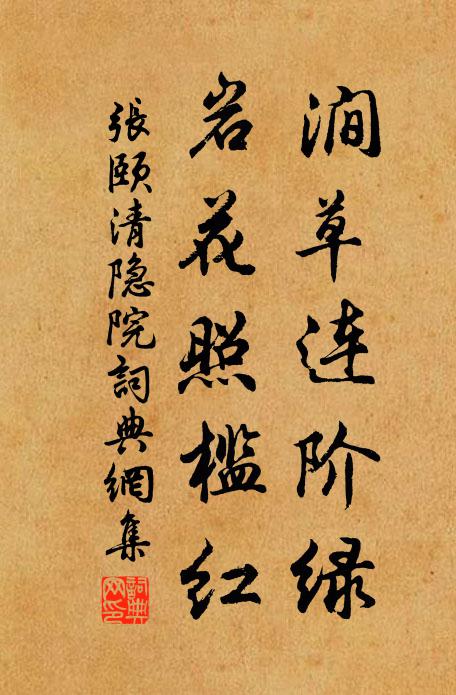 涧草连阶绿
岩花照槛红
張颐清隐院詞典網集
詞典
网印